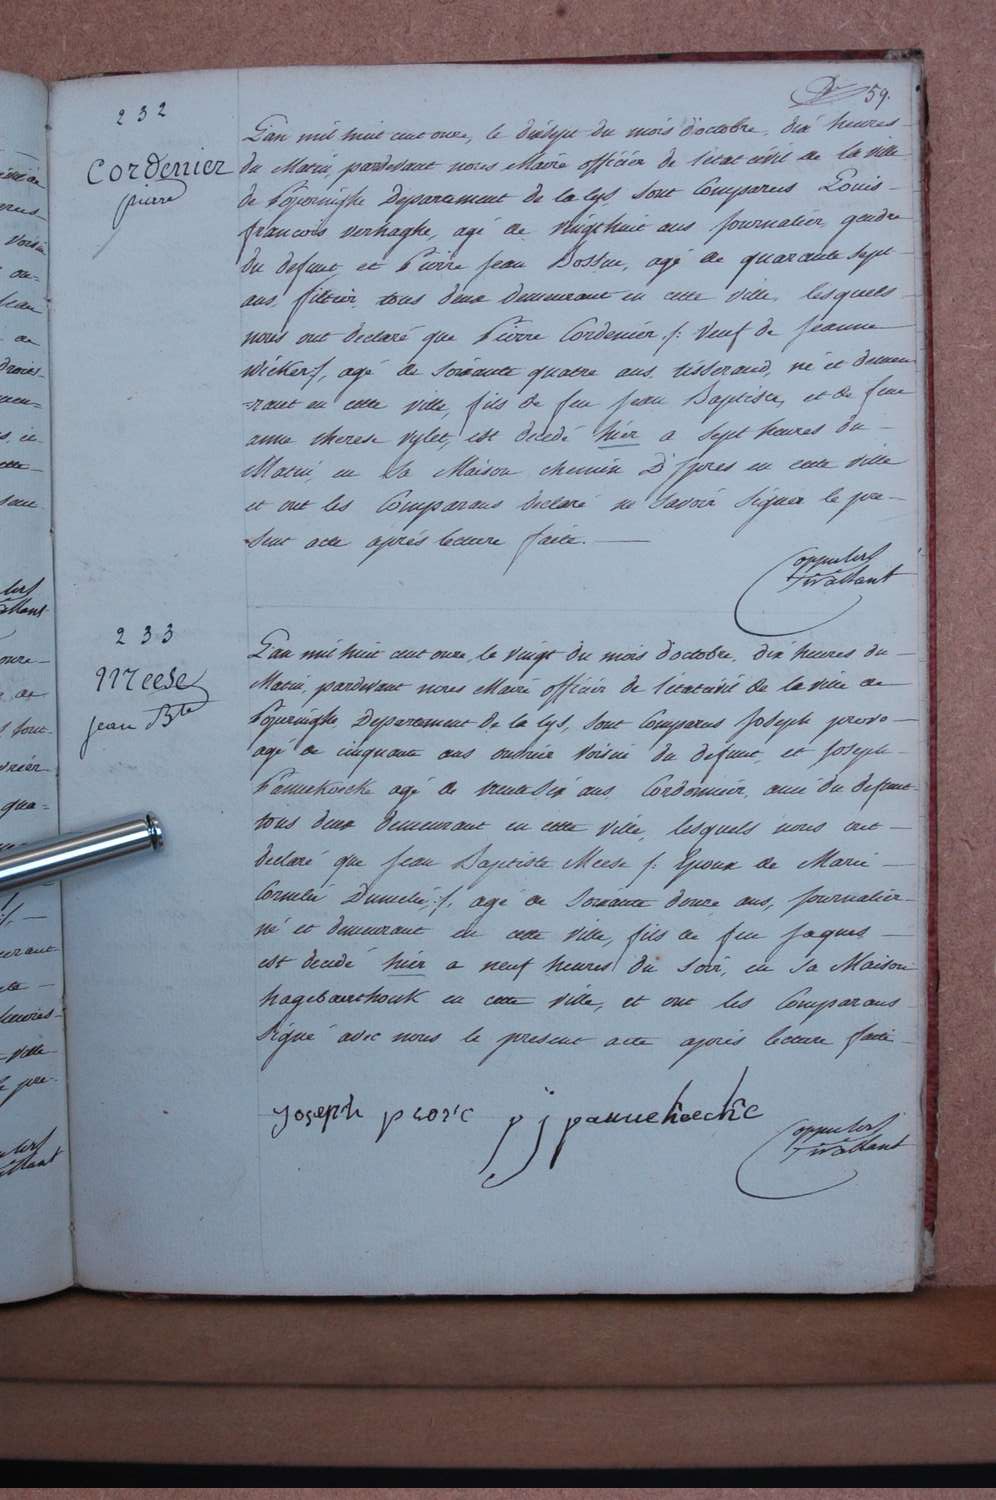 59.
232
Cordenier
pierre
L'an mil huit cent onze, le dixsept du mois d'octobre, dix heures
du Matin, pardevant nous Maire officier de l'état civil de la ville
de Poperinghe Departement de la Lys, sont Comparus Louis
francois verhaghe, agé de vingthuit ans journalier, gendre
du defunt, et Pierre Jean Bossue, agé de quarante sept
ans, filtier, tous deux demeurant en cette ville, lesquels
nous ont declaré que Pierre Cordenier /: Veuf de Jeanne
wicker:/, agé de soixante quatre ans, tisserand, né et demeu
=rant en cette ville, fils de feu Jean Baptiste, et de feue
anne therese vylet, est decedé hier a sept heures du
Matin, en Sa Maison chemin D'Ypres en cette ville
et ont les Comparans declaré ne Savoir Signer le pre-
=sent acte après lecture faite.
233
Meese
Jean Bte
L'an mil huit cent onze, le vingt du mois d'octobre, dix heures du
Matin, pardevant nous Maire officier de l'état civil de la ville de
Poperinghe Departement de la Lys, sont Comparus Joseph provo
agé de cinquante ans ouvrier voisin du defunt, et Joseph
Pannekoecke agé de trente six ans, Cordonnier, ami du defunt
tous deux demeurant en cette ville, lesquels nous ont
declaré que Jean Baptiste Meese /: Epoux de Marie
Cornelie :/, agé de soixante douze ans, journalier
né et demeurant en cette ville, fils de feu Jaques
est decedé hier a neuf heures du soir, en sa Maison
hagebaerthouk en cette ville, et ont les Comparans
signé avec nous le present acte après lecture faite
Joseph provic p j pannekoecke